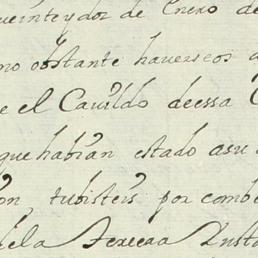 veinte y dos de Enero de
no obstante haverseos
e el Cavildo de essa
que habian estado a su
on, tubisteis por comb
de la tercera Insta